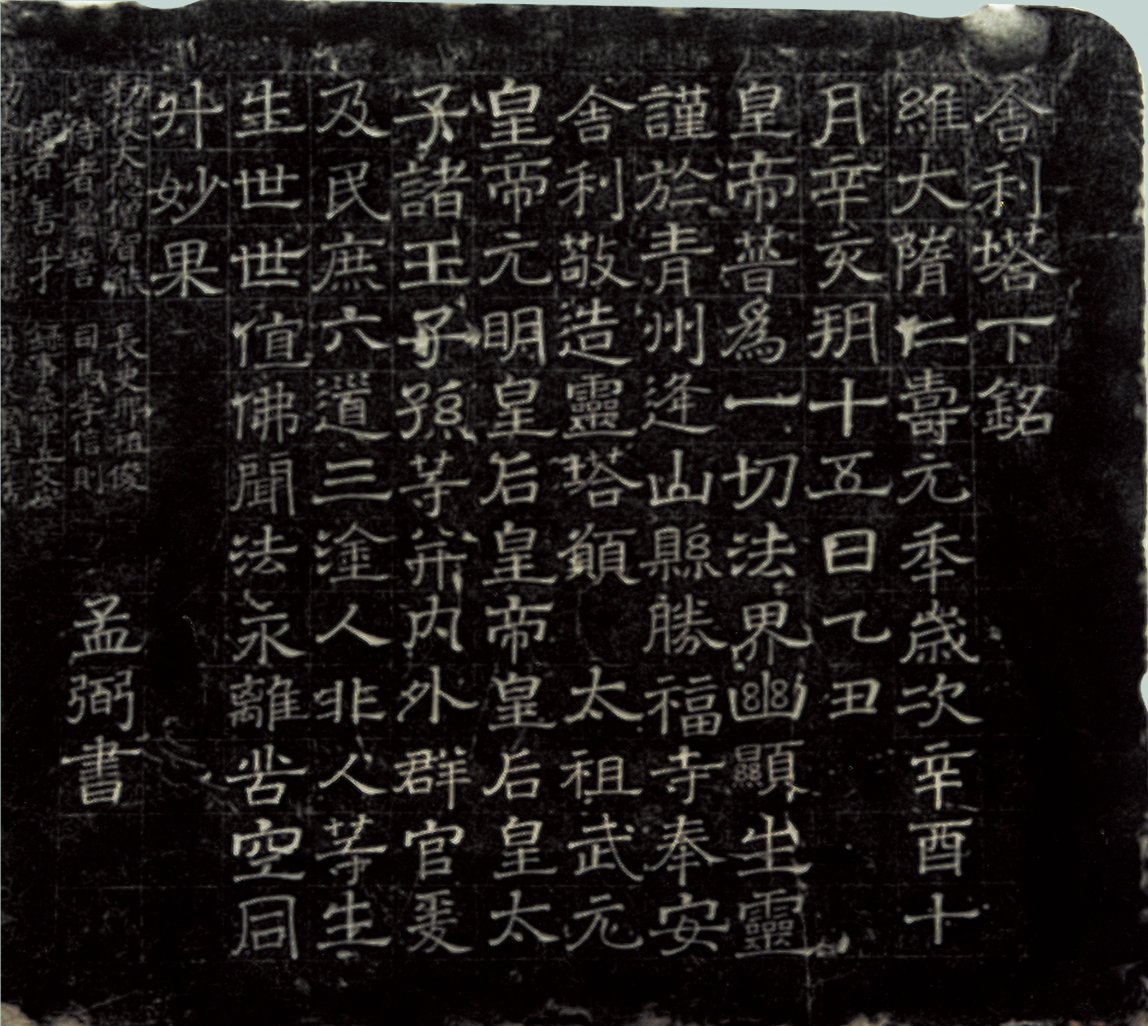 舍利塔下銘
維大隋仁壽元秊歳次辛酉十
月辛亥玥十五日乙丑
皇帝普爲一切法界幽顯生靈
謹於青州逄山縣勝福寺奉安
舍利敬造靈塔願太祖武元
皇帝元明皇后皇帝皇后皇太
子諸王子孫等并内外群官爰
及民庶六道三塗人非人等生
生世世值佛聞法永離苦空同
升妙果
孟弼書
敕使大德僧智能
長史邢祖俊
侍者
司馬李信則
侍者善才
錄事參軍丘文安